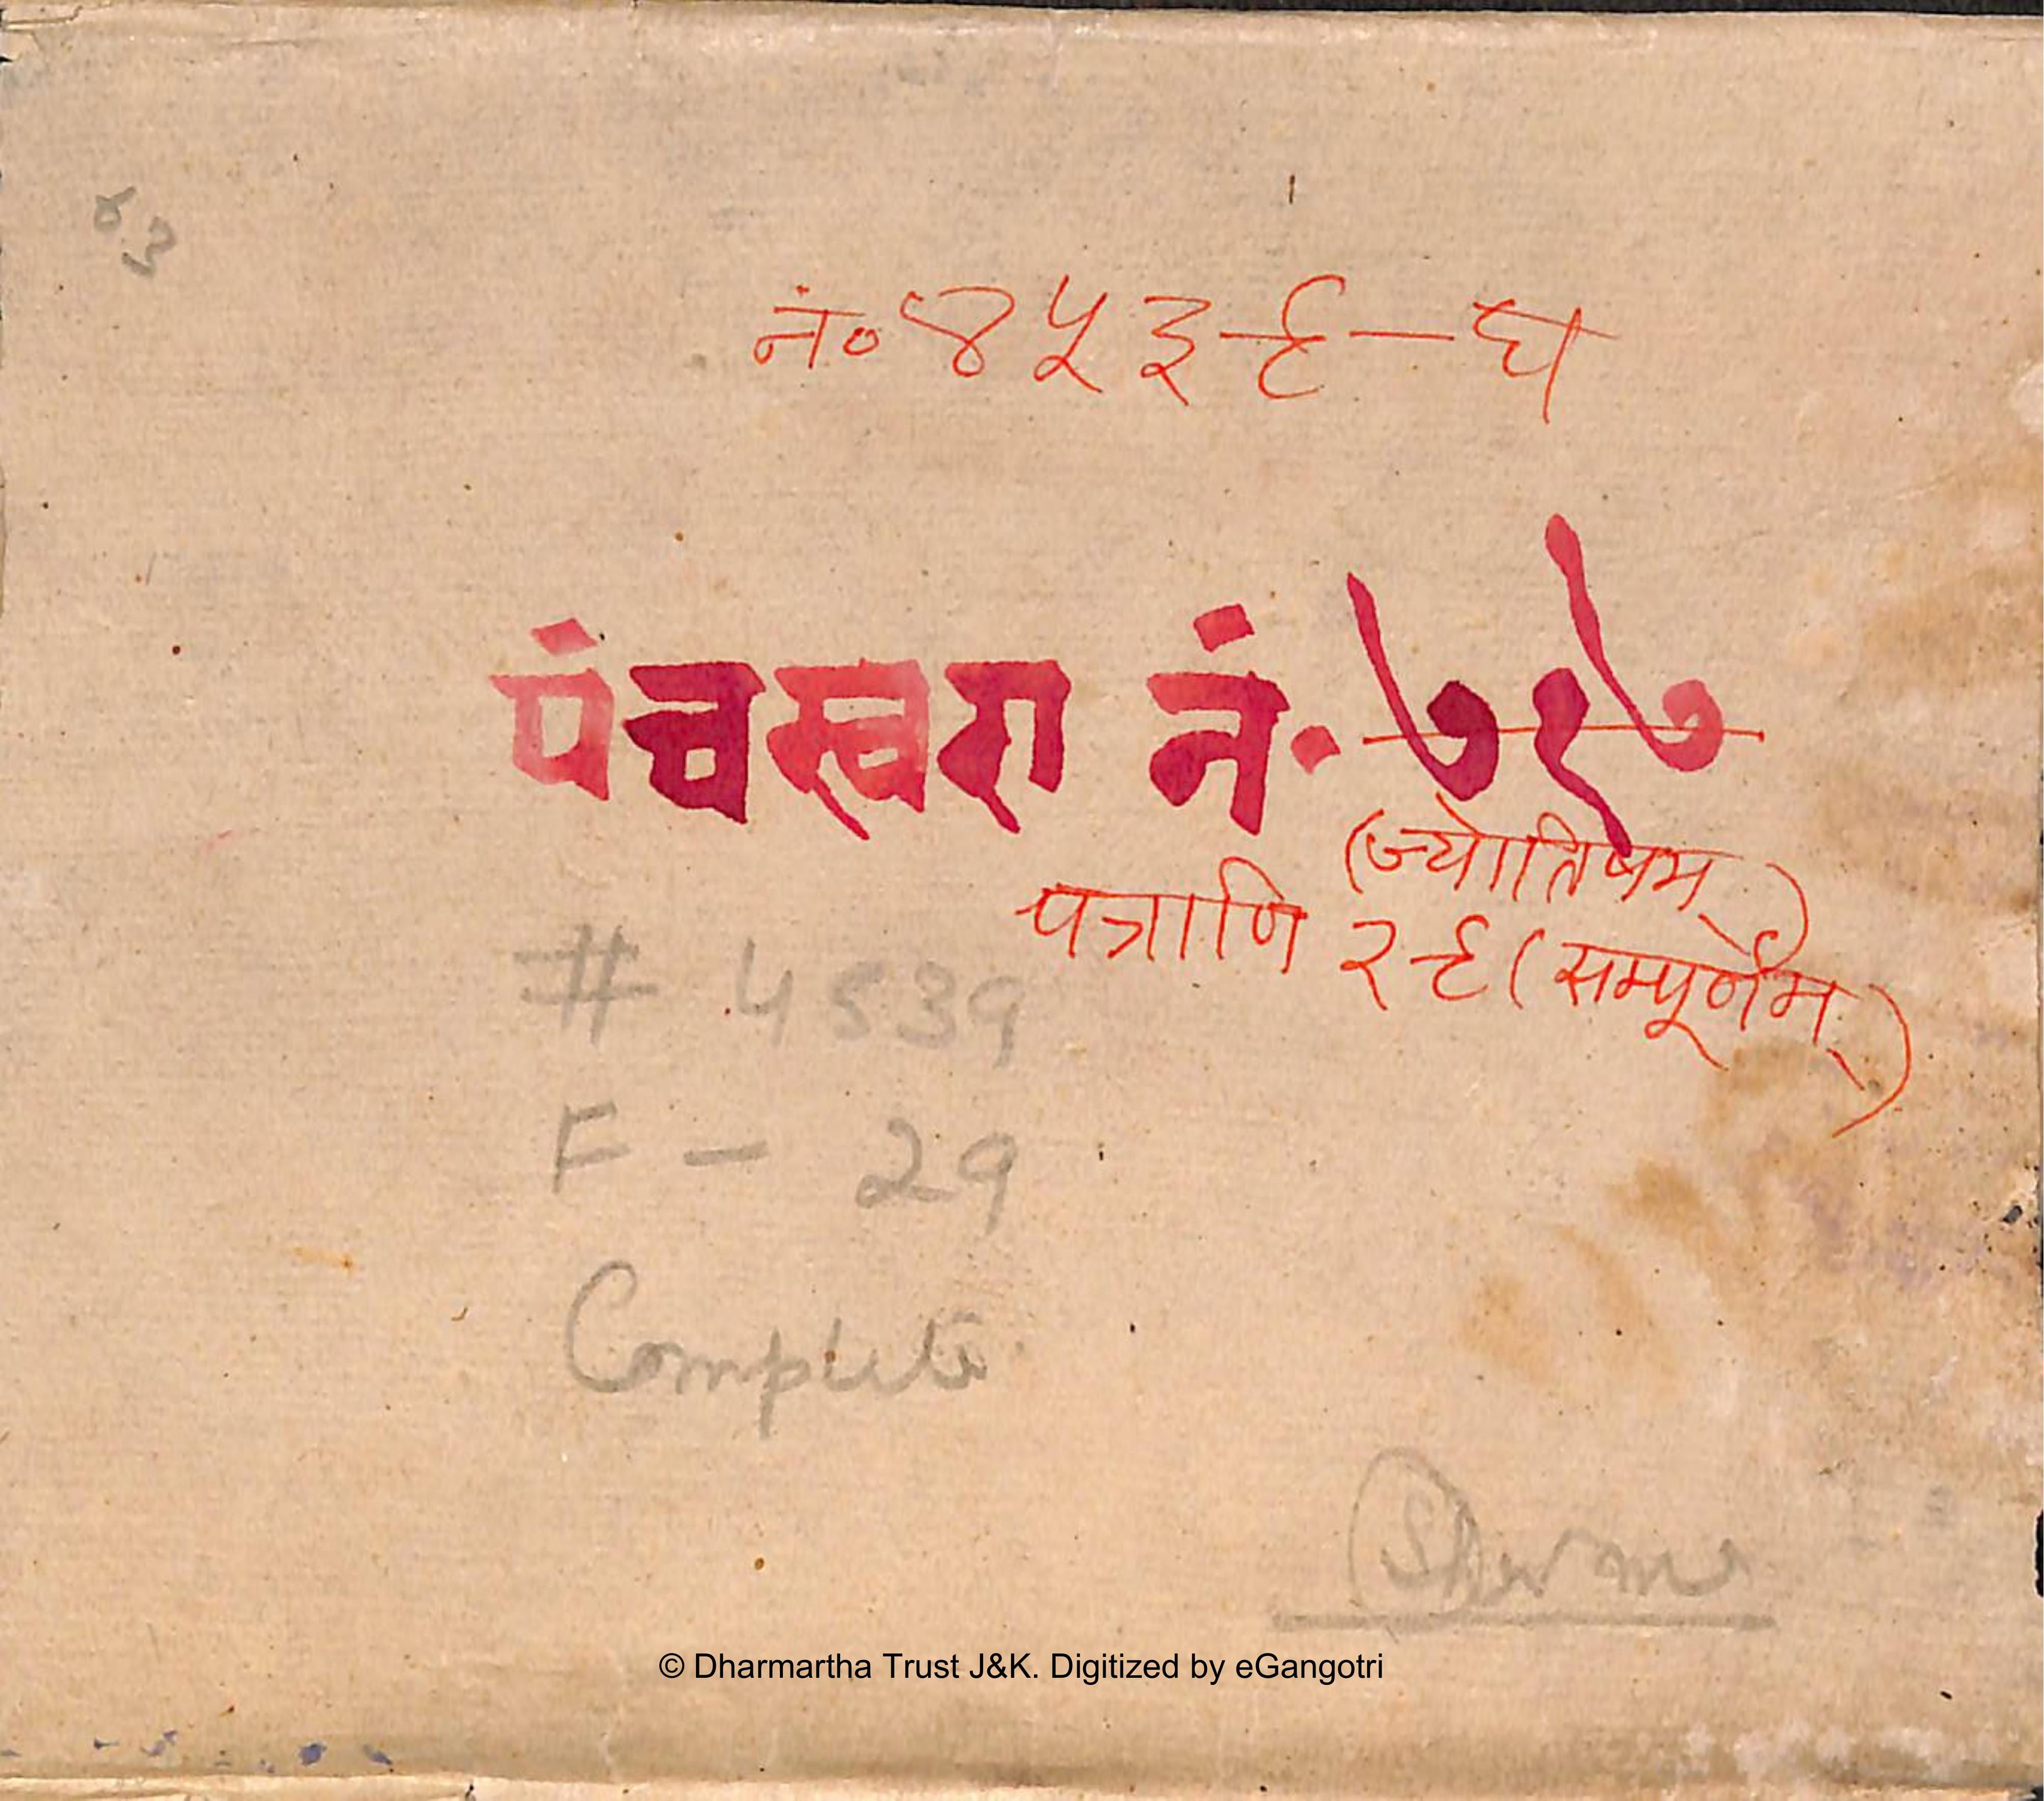 ४३
नं० ४५३९ - घ
पंचस्वरा नं. ७१७
(ज्योतिषम्)
पत्राणि २९ (सम्पूर्णम्)
# 4539
F - 29
Complete
© Dharmartha Trust J&K. Digitized by eGangotri